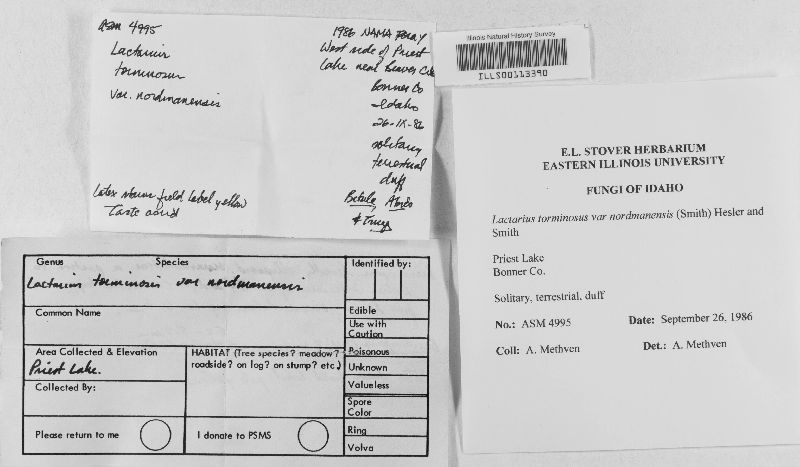 ASM 4995
Lactarius
torminosus
var. nordmanensis
Latex stains field label yellow
Taste acrid
1986 NAMA Foray
West side of Priest
Lake near Beaver Crk
Bonner Co
Idaho
26-IX-86
solitary
terrestrial
duff
Betula, Abies
& Tsuga
Illinois Natural History Survey
ILLS00113390
E.L. STOVER HERBARIUM
EASTERN ILLINOIS UNIVERSITY
FUNGI OF IDAHO
Lactarius torminosus var nordmanensis (Smith) Hesler and
Smith
Priest Lake
Bonner Co.
Solitary, terrestrial, duff
No.: ASM 4995 Date: September 26, 1986
Coll: A. Methven Det.: A. Methven
Genus Species
Lactarius torminosis var nordmanensis
Common Name
Area Collected & Elevation
Priest Lake.
Collected By:
HABITAT (Tree species? meadow?
roadside? on log? on stump? etc.)
Please return to me
I donate to PSMS
Identified by:
Edible
Use with
Caution
Poisonous
Unknown
Valueless
Spore
Color
Ring
Volva